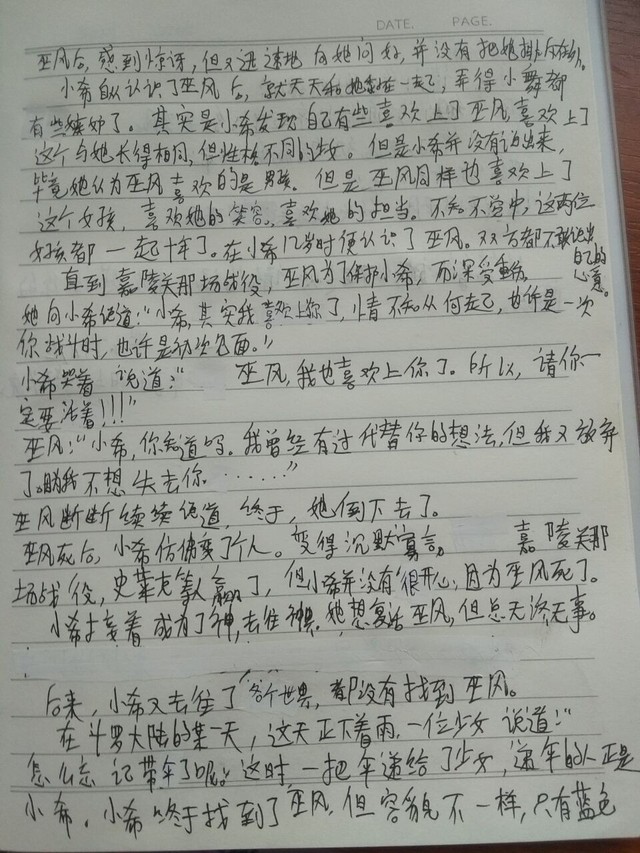 DATE. PAGE.
巫风后,感到惊讶,但又迅速地向她问好,并没有把她排斥在外。
小希自从认识了巫风后,就天天和她黏在一起,弄得小舞都
有些嫉妒了。其实是小希发现自己有些喜欢上了巫风,喜欢上了
这个与她长得相同,但性格不同的少女。但是小希并没有说出来,
毕竟她认为巫风喜欢的是男孩。但是巫风同样也喜欢上了
这个女孩,喜欢她的笑容,喜欢她的担当。不知不觉中,这两位
女孩都一起十年了。在小希几岁时便认识了巫风。双方都不敢说出
自己的心意。
直到嘉陵关那场战役,巫风为了保护小希,而深受重伤。
她向小希说道:“小希,其实我喜欢上你了,情不知从何起,也许是一次
你战斗时,也许是初次见面。”
小希哭着说道:“巫风,我也喜欢上你了。所以,请你一
定要活着!!!”
巫风:“小希,你知道吗。我曾经有过代替你的想法,但我又放弃
了。因为我不想失去你......”
巫风断断续续说道,终于,她倒下去了。
巫风死后,小希仿佛变了个人。变得沉默寡言。嘉陵关那
场战役,史莱克等人赢了,但小希并没有很开心,因为巫风死了。
小希接着成为了神,去往神界。她想复活巫风,但总无济无事。
后来,小希又去往了各个世界,都没有找到巫风。
在斗罗大陆的某一天,这天正下着雨,一位少女说道:“
怎么忘记带伞了呢。这时一把伞递给了少女,递伞的人正是
小希。小希终于找到了巫风,但容貌不一样,只有蓝色